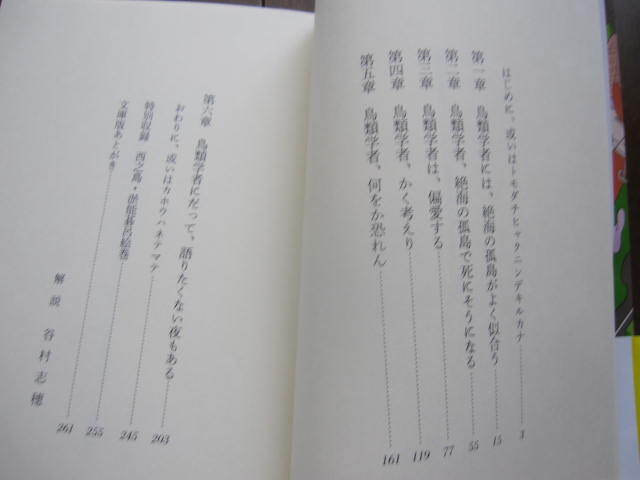 はじめに、或いはトモダチヒャクニンデキルカナ 3
第一章 鳥類学者には、絶海の孤島がよく似合う 15
第二章 鳥類学者、絶海の孤島で死にそうになる 55
第三章 鳥類学者は、偏愛する 77
第四章 鳥類学者、かく考えり 119
第五章 鳥類学者、何をか恐れん 161
第六章 鳥類学者にだって、語りたくない夜もある 203
おわりに、或いはカホウハネテマテ
特別収録 西之島・能碁呂絵巻 245
文庫版あとがき 255
解説 谷村志穂 261